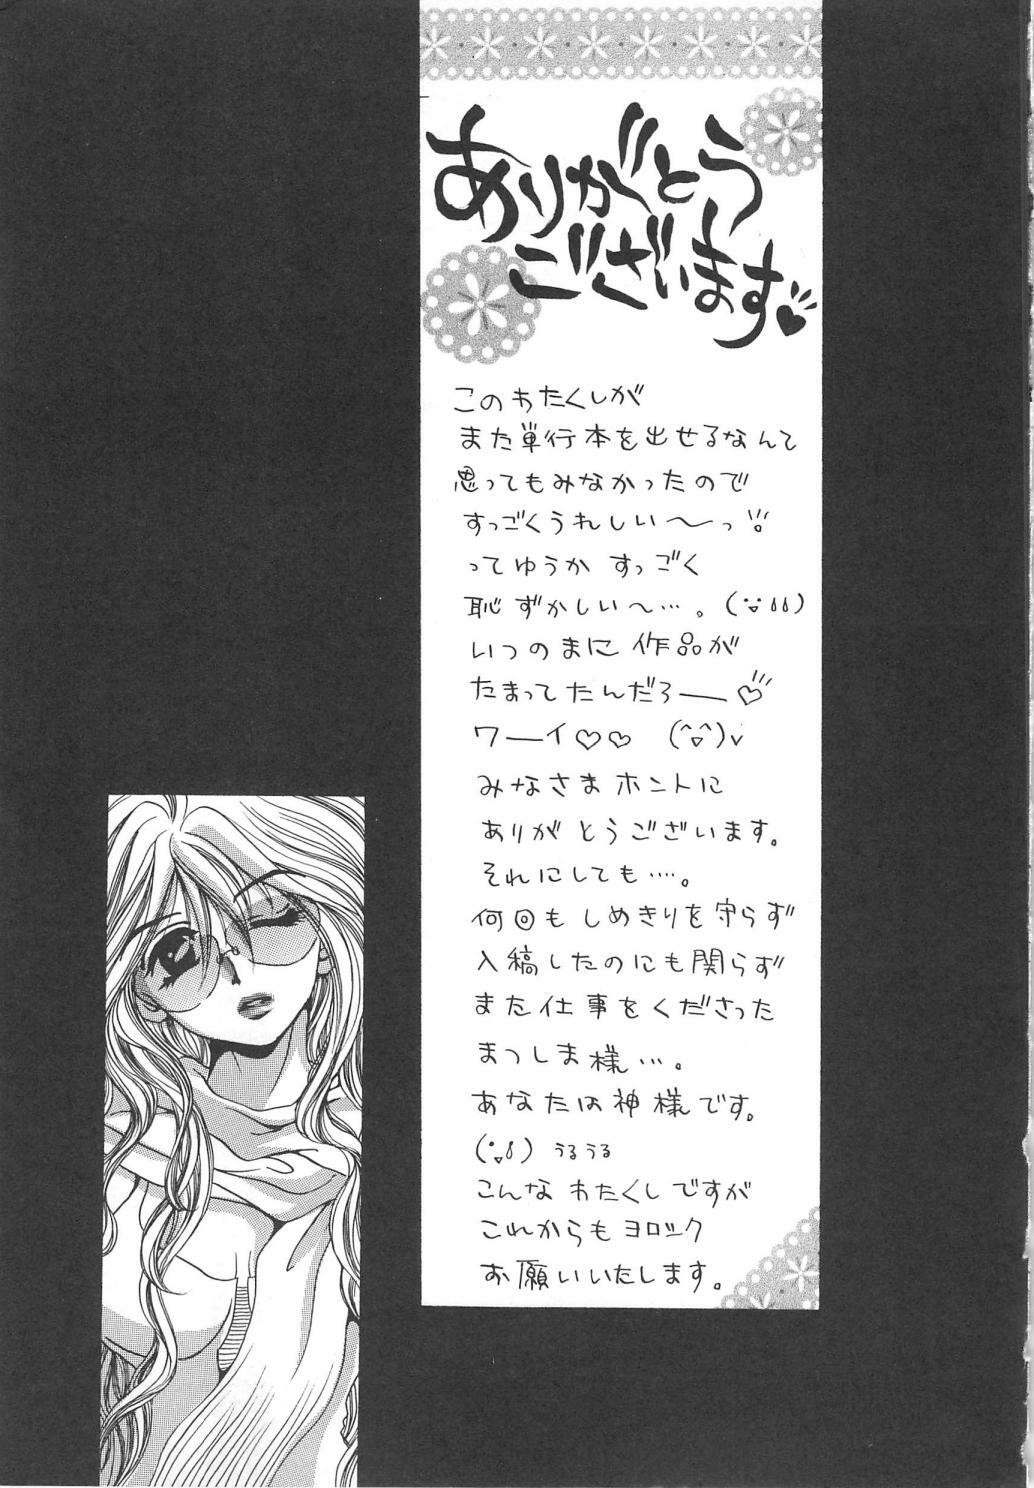 ありがとう
ございます♡
このわたくしが
また単行本を出せるなんて
思ってもみなかったので
すっごくうれしい〜っ!!
ってゆうか すっごく
恥ずかしい〜…。
いつのまに作品が
たまってたんだろ——♡
ワ——イ♡♡ (^▽^)v
みなさまホントに
ありがとうございます。
それにしても…。
何回もしめきりを守らず
入稿したのにも関らず
また仕事をくださった
まつしま様…。
あなたは神様です。
うるうる
こんなわたくしですが
これからもヨロシク
お願いいたします。